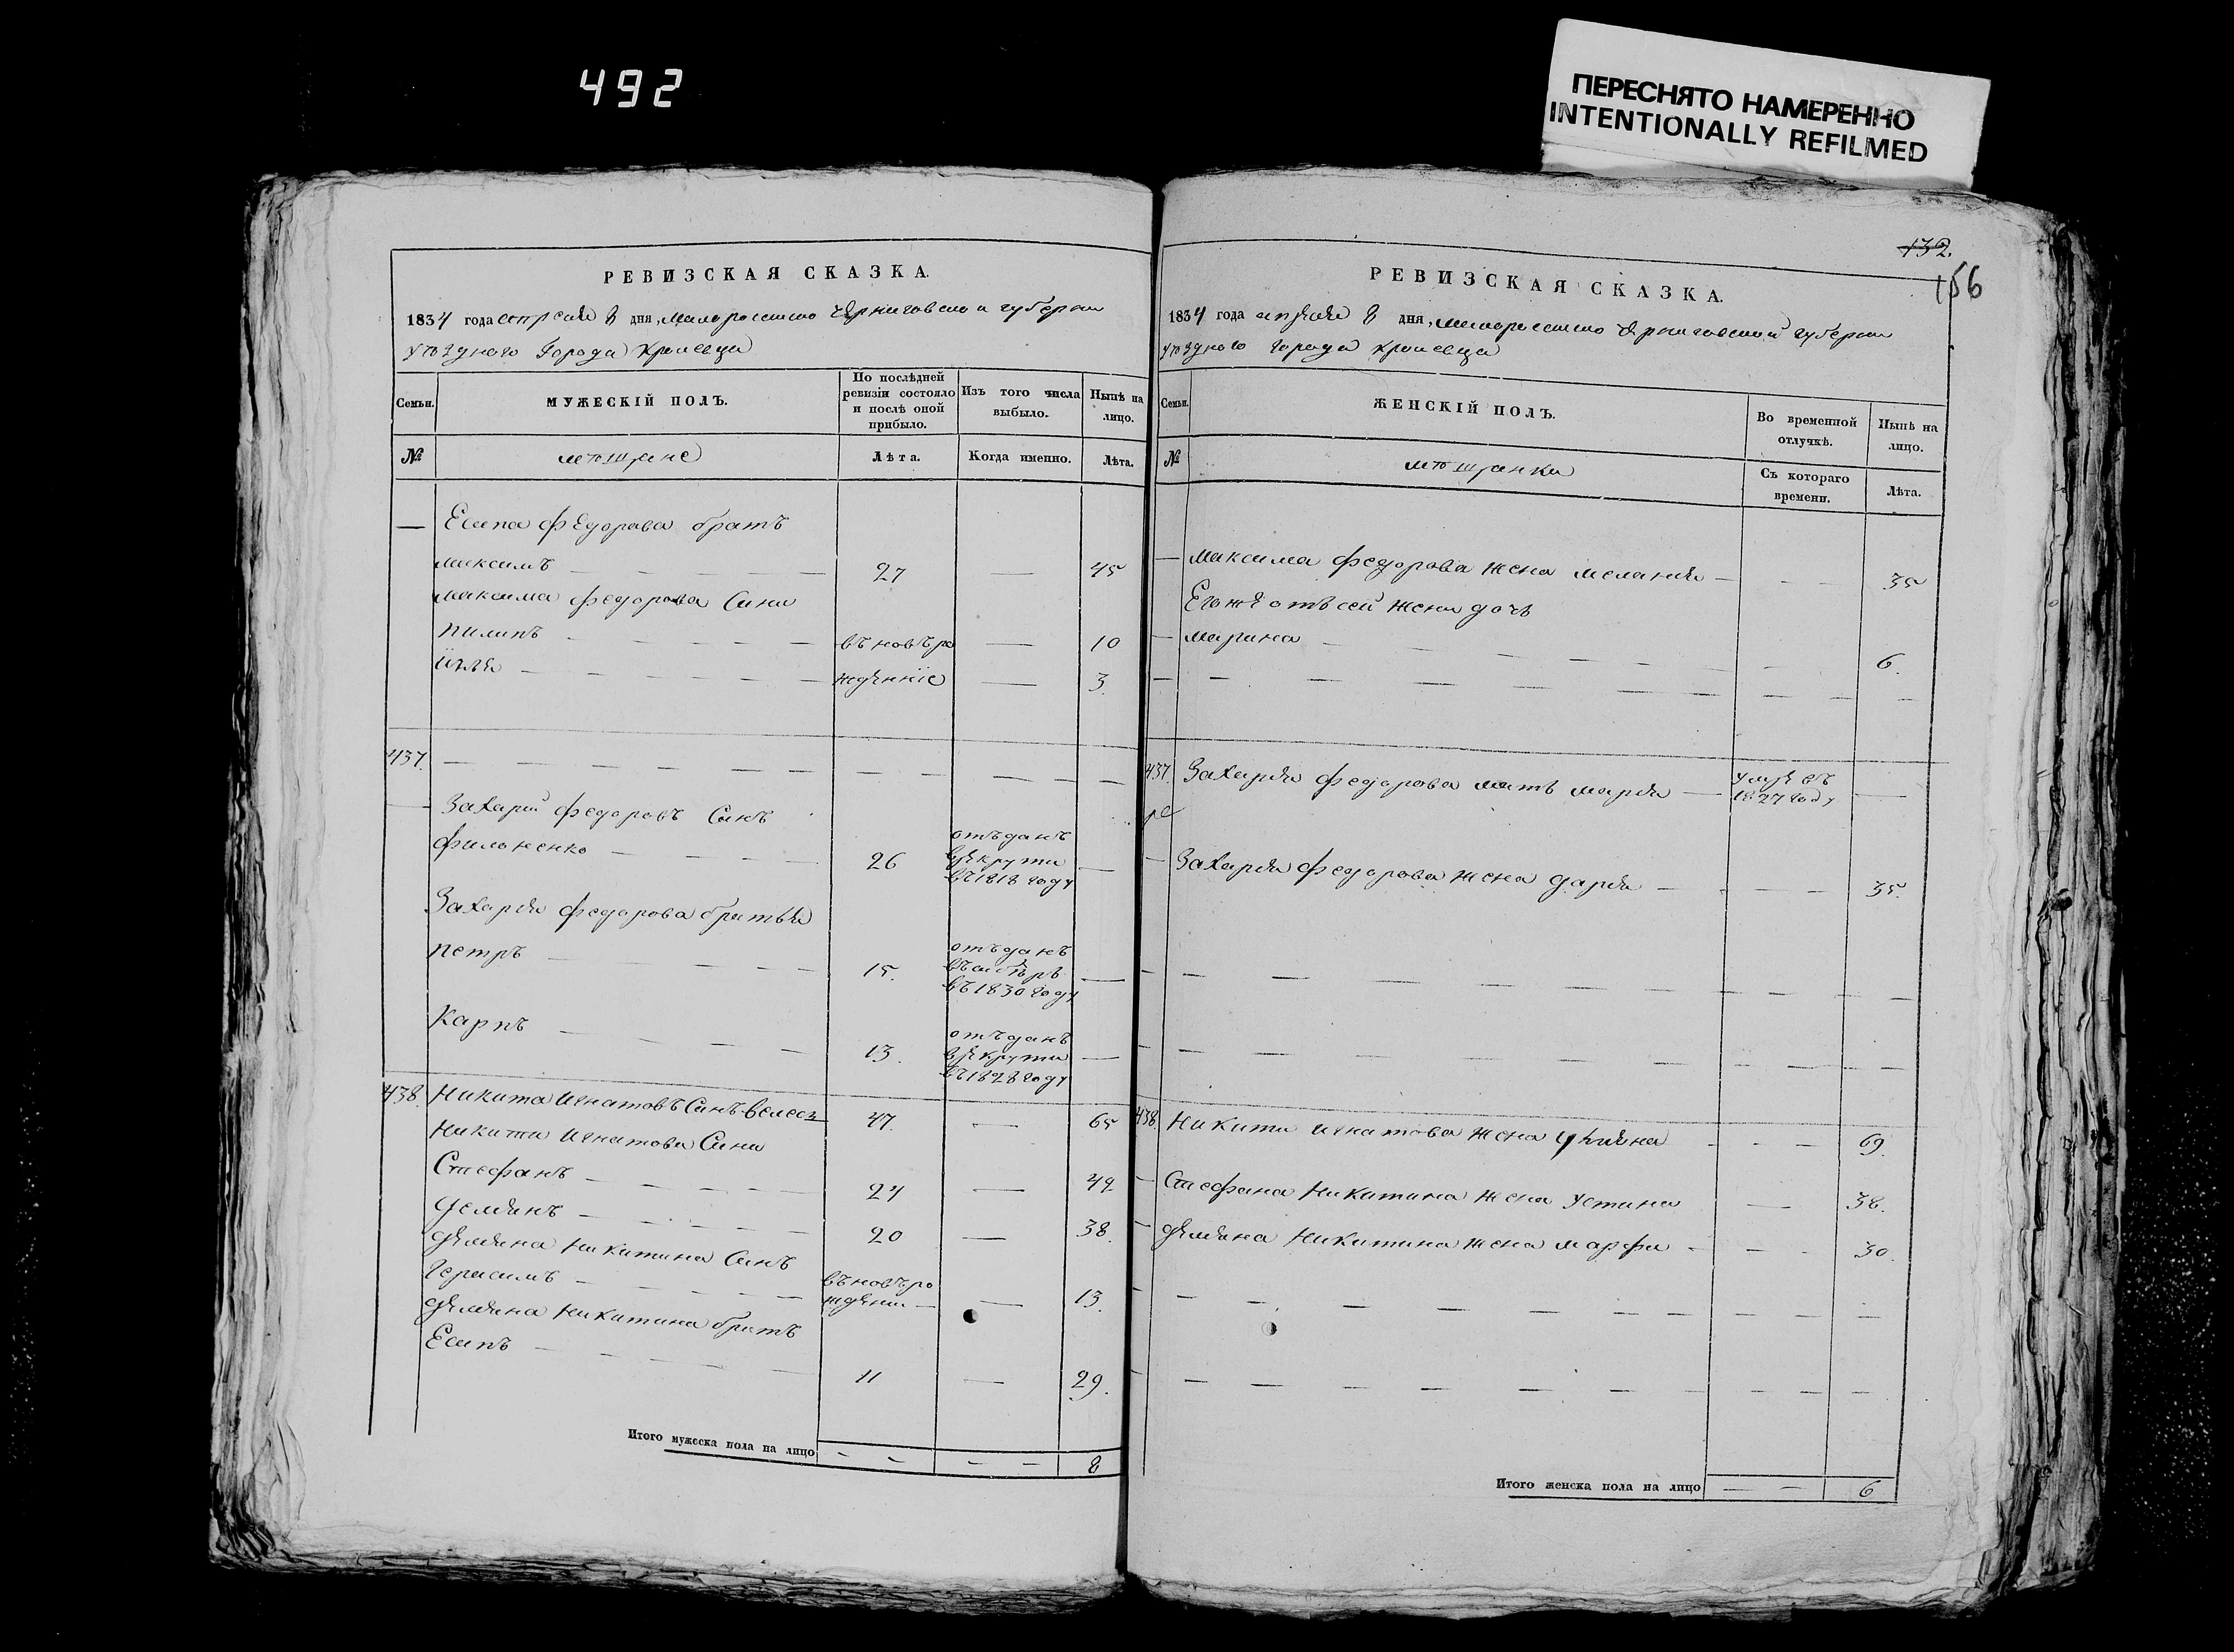 492
ПЕРЕСНЯТО НАМЕРЕННО
INTENTIONALLY REFILMED
132.
156
РЕВИЗСКАЯ СКАЗКА.
1834 года апреля 8 дня, Малоросийско Черниговской губернии
уездного Города Кролевца
Семьи. МУЖЕСКІЙ ПОЛЪ. По послѣдней ревизіи состояло и послѣ оной прибыло. Изъ того числа выбыло. Нынѣ на лицо.
№ мѣщане Лѣта. Когда именно. Лѣта.
— Есипа Федорова братъ
максимъ — 27 — 45
максима федорова Сини
пилипъ — въ новъ ро — 10
ілля — жденніе — 3.
437. — — — —
— Захарій федоровъ Синъ
филоненко — 26 отъданъ в рекрути въ 1818 году —
Захарія федорова братья
петръ — 15. отъданъ въ сибѣрь въ 1830 году —
Карпъ — 13. отъданъ в рекрути въ 1828 году —
438. Никита Игнатовъ Синъ 47. — 65
Никити Игнатова Сини
Стефанъ — 24 — 42
Демянъ — 20 — 38.
Демяна Никитина Синъ
Герасимъ — въ новъ рождени — — 13.
Демяна Никитина братъ
Есипъ — 11 — 29.
Итого мужеска пола на лицо — — — — 8
РЕВИЗСКАЯ СКАЗКА.
1834 года апреля 8 дня, Малоросийско Черниговской губернии
уездного города Кролевца
Семьи. ЖЕНСКІЙ ПОЛЪ. Во временной отлучкѣ. Нынѣ на лицо.
№ мѣщанки Съ котораго времени. Лѣта.
— Максима федорова жена мелания — — — 35
Его же отъ сей жени дочь
— марина — — 6.
— — — — — — —
437. Захария федорова мать мария — умре въ 1827 году —
— Захария федорова жена дария — — — 35.
— — — — — — —
— — — — — — —
438. Никити игнатова жена — — 69.
— Стефана Никитина жена устина — 38.
— Демяна Никитина жена марфа — — 30.
— — — — — — —
— — — — — — —
Итого женска пола на лицо — — 6